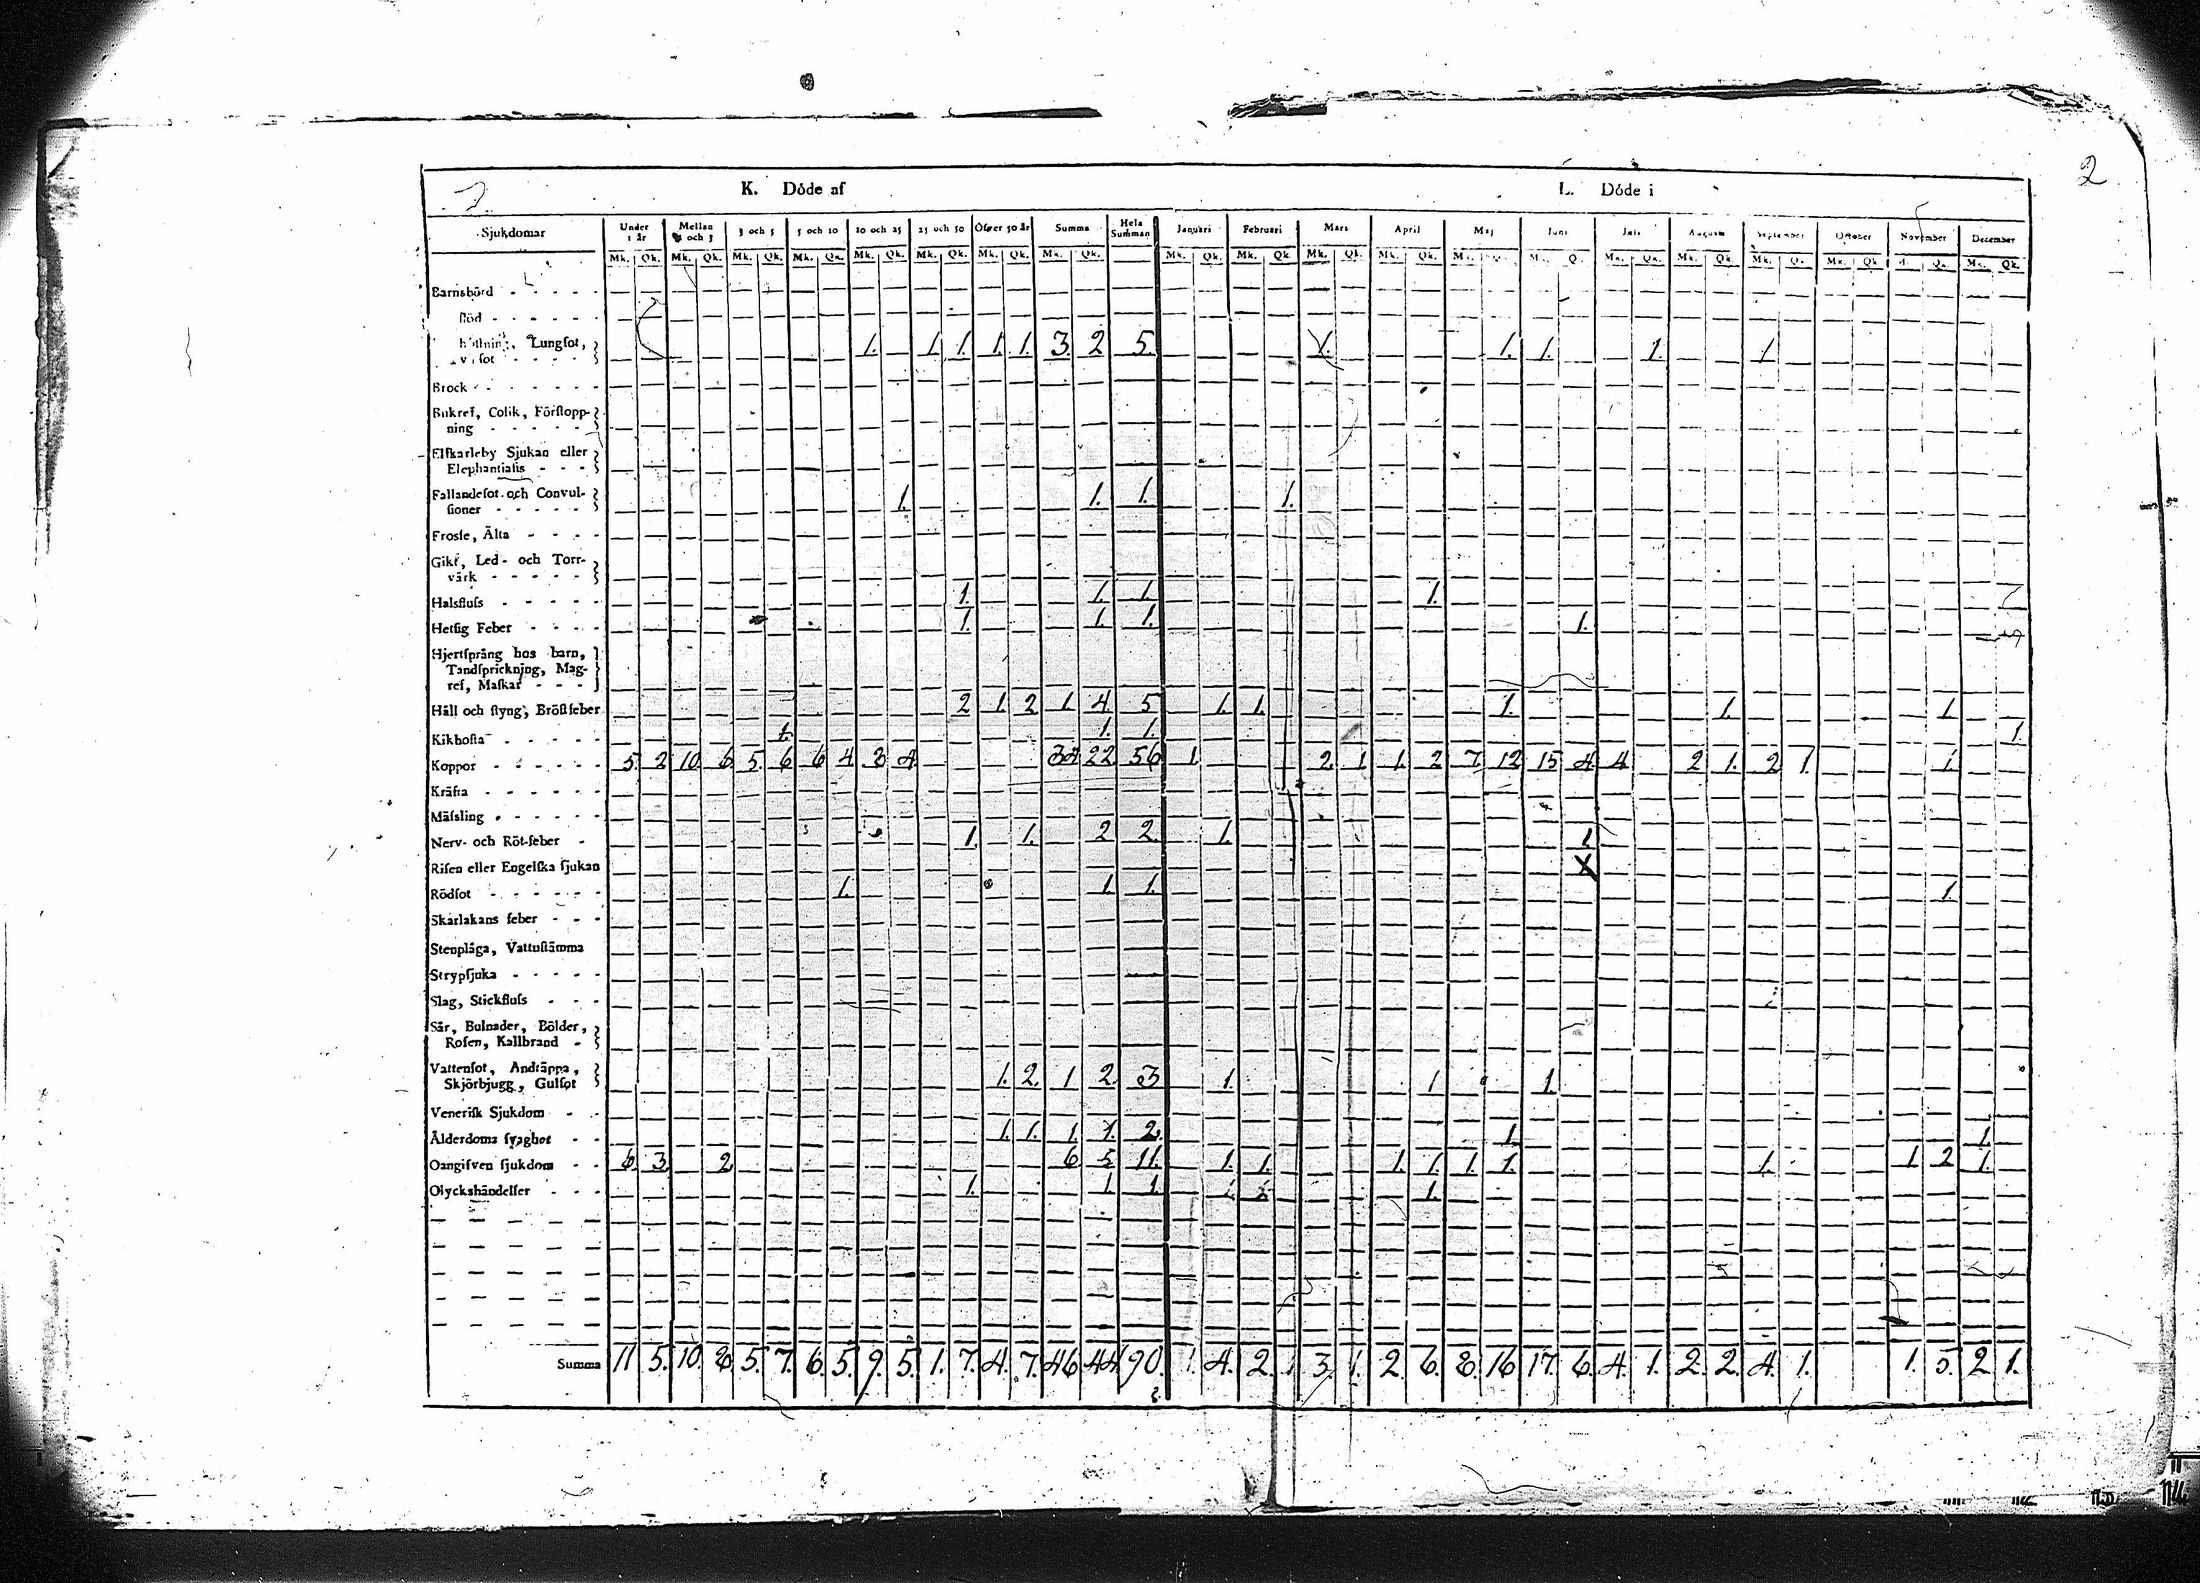 2
K. Döde af L. Döde i
Sjukdomar Under 1 år Mellan och 3 3 och 5 5 och 10 10 och 25 25 och 50 Öfver 50 år Summa Hela Summan Januari Februari Mars April Maj Juni Julii Augusti September October November December
Mk. Qk. Mk. Qk. Mk. Qk. Mk. Qk. Mk. Qk. Mk. Qk. Mk. Qk. Mk. Qk. Mk. Qk. Mk. Qk. Mk. Qk. Mk. Qk.
Barnsbörd
Lungſot, 1. 1 1. 1. 1. 3. 2 5. 1. 1. 1. 1. 1
Brock
Bukref, Colik, Förſtopp-
ning
Elfkarleby Sjukan eller
Elephantiaſis
Fallandeſot och Convul-
ſioner 1. 1. 1. 1.
Froſſe, Älta
Gikt, Led- och Torr-
värk
Halsfluſs 1. 1. 1. 1.
Hetſig Feber 1. 1. 1. 1.
Hjertſprång hos barn,
Tandſprickning, Mag-
ref, Maſkar
Håll och ſtyng, Bröſtfeber 2 1. 2 1 4 5 1. 1. 1. 1. 1
Kikhoſta 1. 1. 1. 1
Koppor 5. 2 10. 6 5. 6 6 4 8 4 34 22 56 1 2 1 1. 2 7. 12 15 4 4 2 1. 2 1. 1.
Kräfta
Mäſsling
Nerv- och Röt-feber 1. 1. 2 2 1. 1
Riſen eller Engelſka ſjukan X
Rödſot 1. 1. 1. 1.
Skarlakans feber
Stenplåga, Vattuſtämma
Strypſjuka
Slag, Stickfluſs
Sår, Bulnader, Bölder,
Roſen, Kallbrand
Vattenſot, Andtäppa,
Skjörbjugg, Gulſot 1. 2. 1 2. 3 1. 1 1.
Veneriſk Sjukdom
Ålderdoms ſvaghet 1. 1. 1. 1. 2. 1 1.
Oangifven ſjukdom 6 3 2 6 5 11. 1. 1. 1. 1. 1. 1. 1. 1 2 1.
Olyckshändelſer 1. 1. 1. 1.
Summa 11 5. 10. 8 5. 7. 6. 5. 9. 5. 1. 7. 4. 7. 46 44 90. 1. 4. 2. 3. 1. 2. 6. 8. 16 17. 6. 4. 1. 2. 2. 4. 1. 1. 5. 2 1.